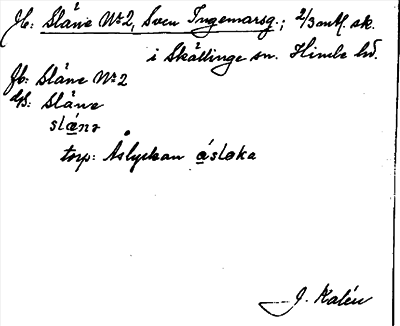 Jb: Slåne Nr 2, Sven Ingemarsg.; 2/3 mtl. sk.
i Skällinge sn. Himle hd.
Jb: Slåne Nr 2
dS: Slåne
slånə
torp: Åslyckan åsloka
J. Kalén